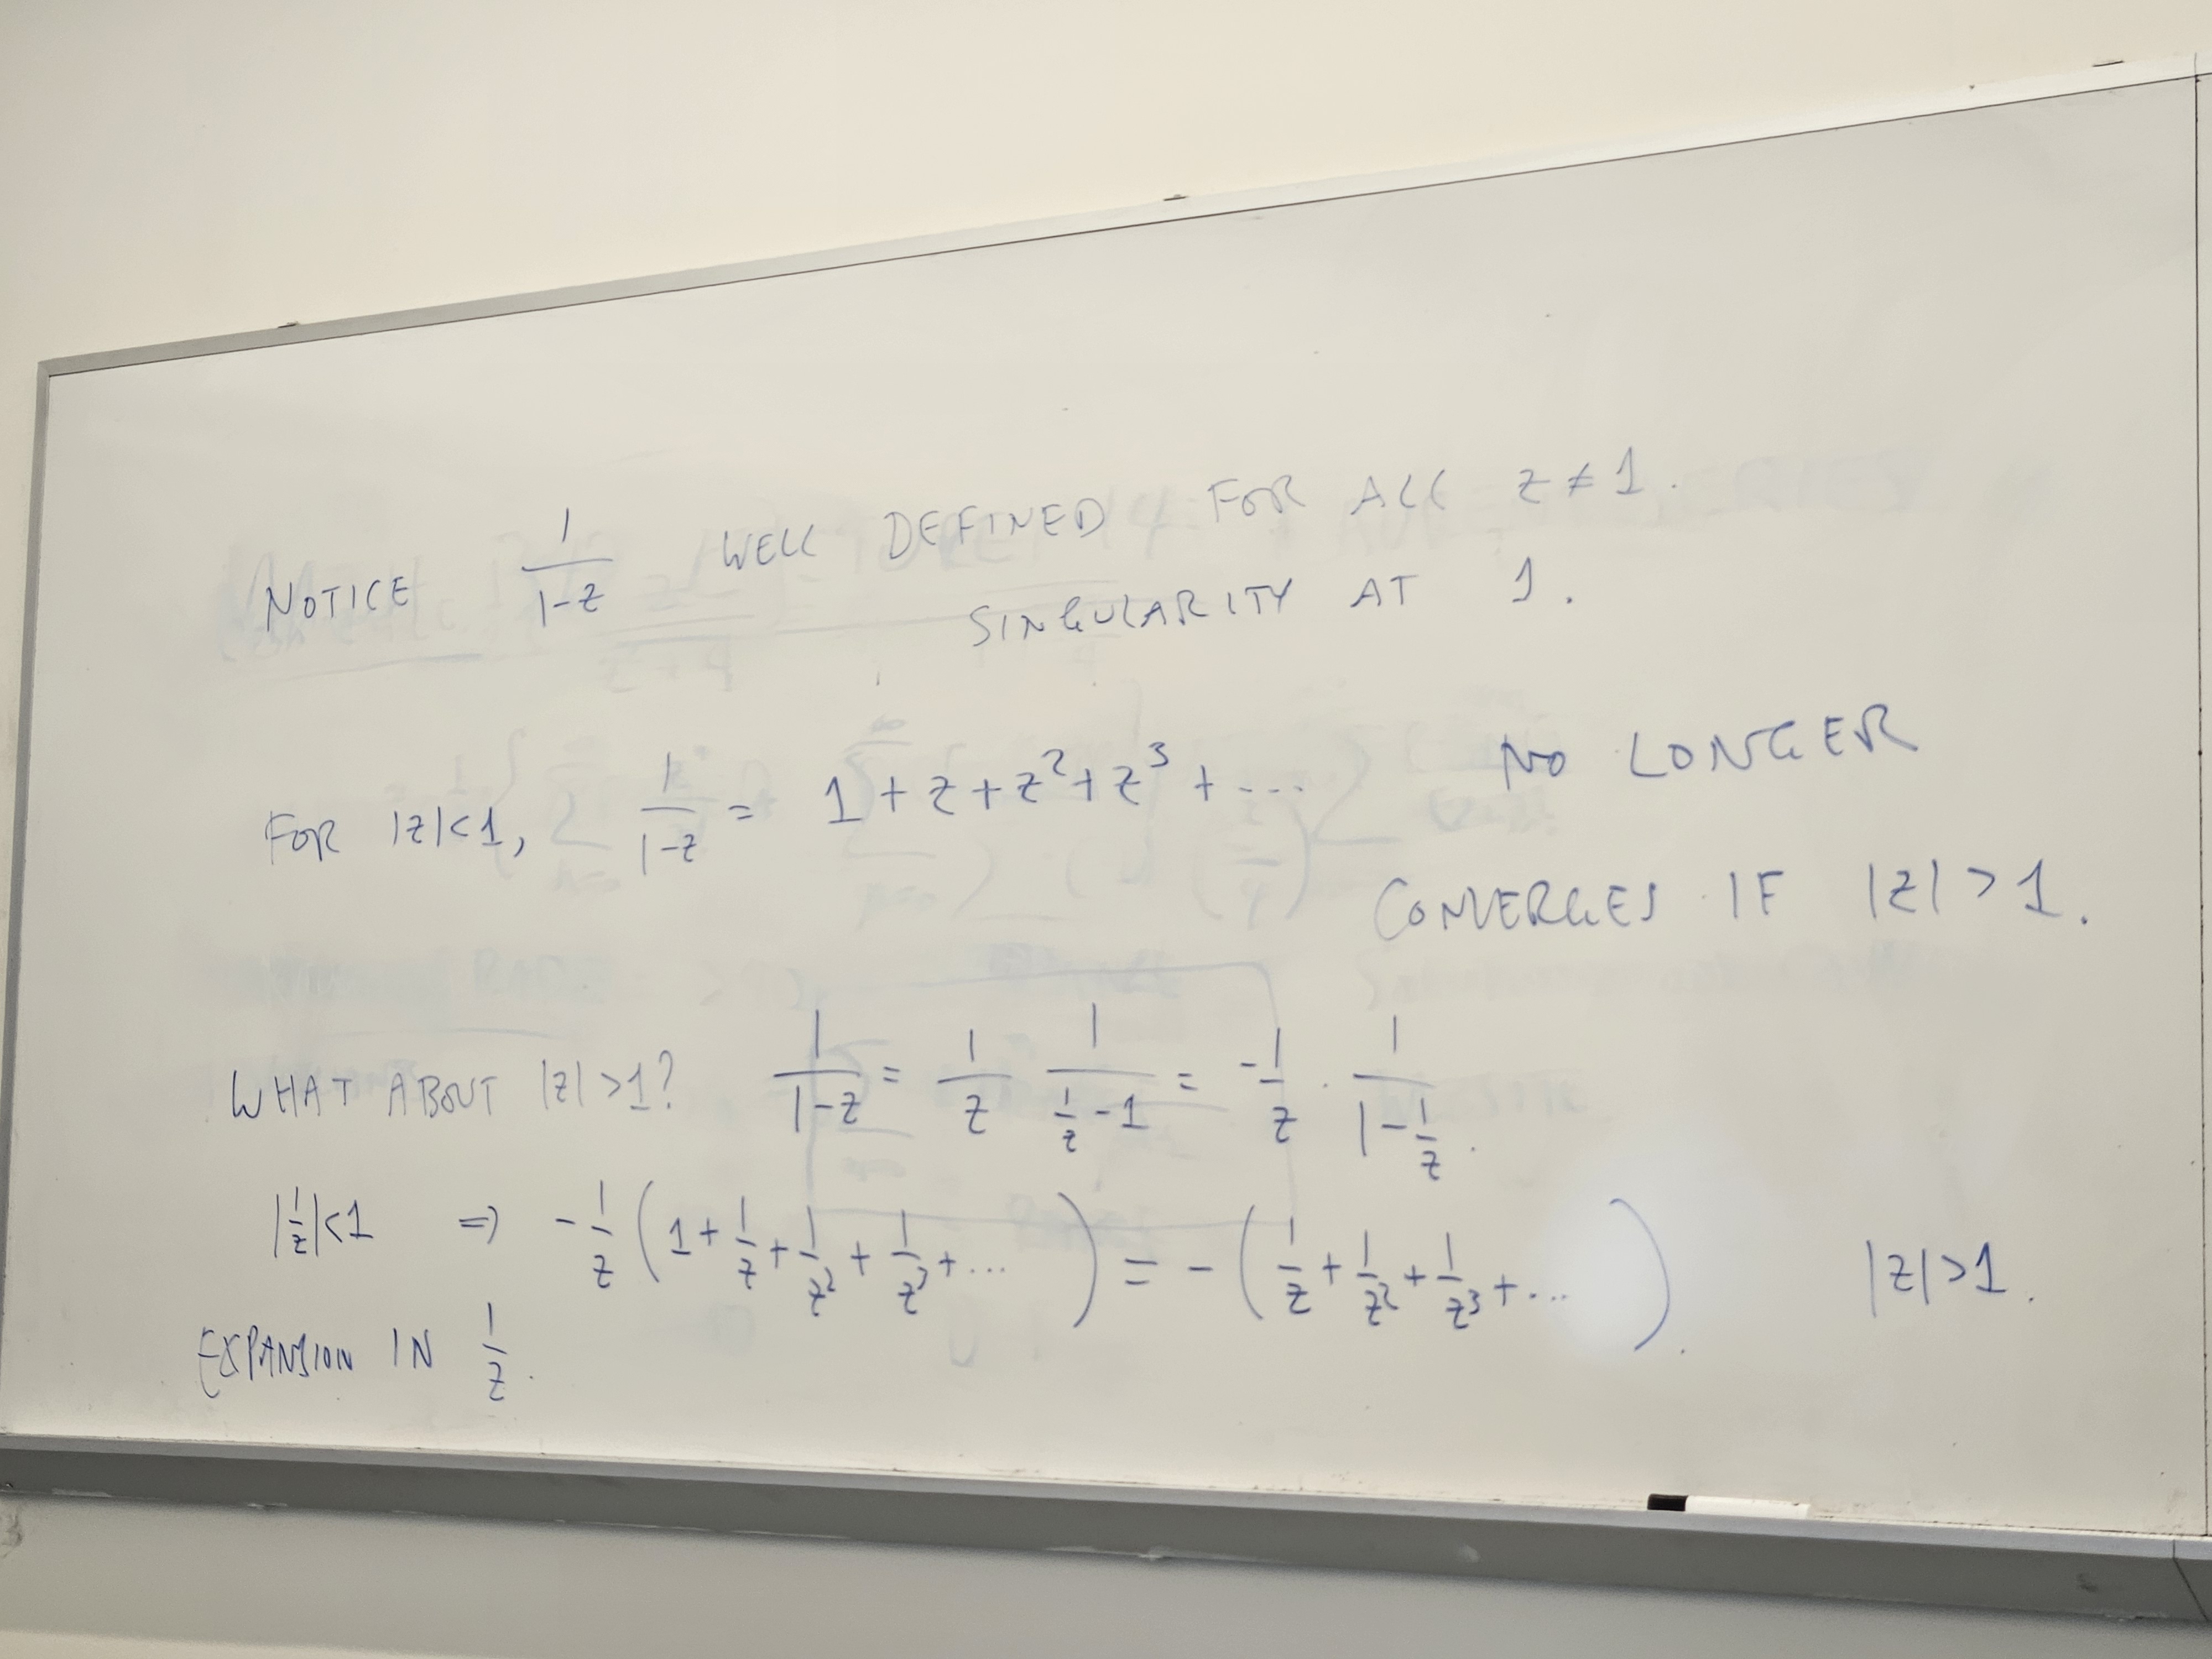 NOTICE 1/(1-z) WELL DEFINED FOR ALL z ≠ 1.
SINGULARITY AT 1.
FOR |z|<1, 1/(1-z) = 1 + z + z² + z³ + ... NO LONGER
CONVERGES IF |z| > 1.
WHAT ABOUT |z| > 1? 1/(1-z) = 1/z 1/(1/z - 1) = -1/z · 1/(1 - 1/z).
|1/z|<1 ⇒ -1/z (1 + 1/z + 1/z² + 1/z³ + ...) = - (1/z + 1/z² + 1/z³ + ...). |z|>1.
EXPANSION IN 1/z.